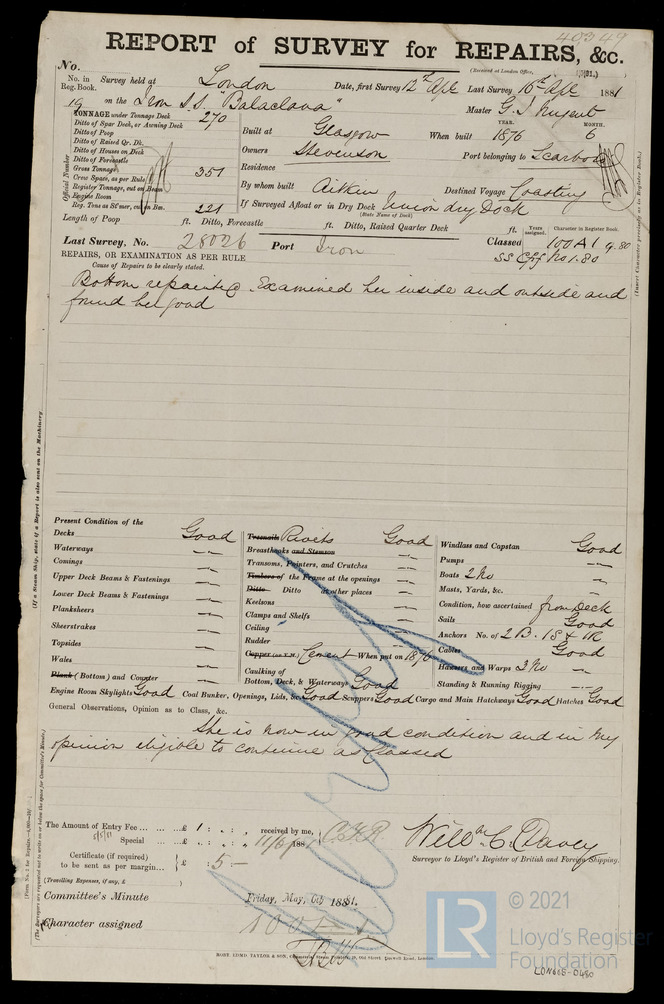 40349
REPORT of SURVEY for REPAIRS, &c.
(Received at London Office,
No.
No. in Reg. Book. Survey held at London Date, first Survey 12th Apl Last Survey 16th Apl 1881
19 on the Iron S.S. "Balaclava" Master G. J. Nugent
TONNAGE under Tonnage Deck 270
Ditto of Spar Deck, or Awning Deck
Ditto of Poop
Ditto of Raised Qr. Dk.
Ditto of Houses on Deck
Ditto of Forecastle
Gross Tonnage 351
Crew Space, as per Rule
Register Tonnage, cut on Beam
Engine Room
Reg. Tons as St'mer, cut on Bm. 221
Official Number
Built at Glasgow When built YEAR. 1876 MONTH. 6
Owners Stevenson Port belonging to Scarboro
Residence
By whom built Aitken Destined Voyage Coasting
If Surveyed Afloat or in Dry Dock Union dry Dock
(State Name of Dock)
Length of Poop ft. Ditto, Forecastle ft. Ditto, Raised Quarter Deck ft.
Years assigned. Character in Register Book.
Last Survey, No. 28026 Port Iron Classed 100A1 9.80
SS Cff No 1.80
REPAIRS, OR EXAMINATION AS PER RULE
Cause of Repairs to be clearly stated.
Bottom repainted. Examined her inside and outside and
found her good
(Insert Character precisely as in Register Book.)
(If a Steam Ship, state if a Report is also sent on the Machinery.
Present Condition of the
Decks Good
Waterways
Comings
Upper Deck Beams & Fastenings
Lower Deck Beams & Fastenings
Planksheers
Sheerstrakes
Topsides
Wales
Plank (Bottom) and Counter
Treenails Rivets Good
Breasthooks and Stemson
Transoms, Pointers, and Crutches
Timbers of the Frame at the openings
Ditto Ditto at other places
Keelsons
Clamps and Shelfs
Ceiling
Rudder
Copper (or Y.M.) Cement When put on 1876
Caulking of
Bottom, Deck, & Waterways Good
Windlass and Capstan Good
Pumps
Boats 2 No
Masts, Yards, &c.
Condition, how ascertained from Deck
Sails Good
Anchors No. of 2 B. 1 S & 1 K
Cables Good
Hawsers and Warps 3 No
Standing & Running Rigging
Engine Room Skylights Good Coal Bunker, Openings, Lids, &c. Good Scuppers Good Cargo and Main Hatchways Good Hatches Good
General Observations, Opinion as to Class, &c.
She is now in good condition and in my
opinion eligible to continue as Classed
The Amount of Entry Fee £ 1 : : received by me,
Special £ : : 11/5/1881
Certificate (if required)
to be sent as per margin £ : 5 : -
(Travelling Expenses, if any, £ )
Willm C. Davey
Surveyor to Lloyd's Register of British and Foreign Shipping.
Committee's Minute Friday, May, 6th 1881.
Character assigned 100A1
ROBT. EDMD. TAYLOR & SON,
© 2021
LR
Lloyd's Register
Foundation
LON608-0480